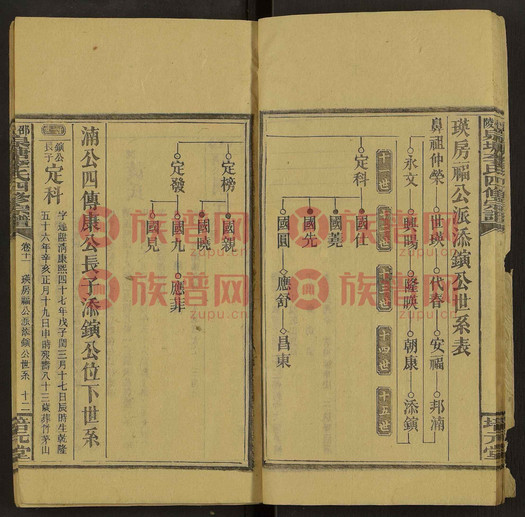 瑛房福公派添鑌公世系表
鼻祖仲榮
世瑛
代春
安福
邦湳
永文
興陽
隆暎
朝康
添鑌
十一世
十二世
十三世
十四世
十五世
定科
國仕
國藄
國光
國圓
應舒
昌東
培元堂
定榜
國親
國曉
定發
國九
應非
國見
湳公四傳康公長子添鑌公位下世系
鑌公長子
定科
字達離清康熙四十七年戊子閏三月十七日辰時生乾隆
五十六年辛亥正月十九日申時歿壽八十三歲葬茅山
卷十一
瑛房福公派添鑌公世系
十二
培元堂
族谱网